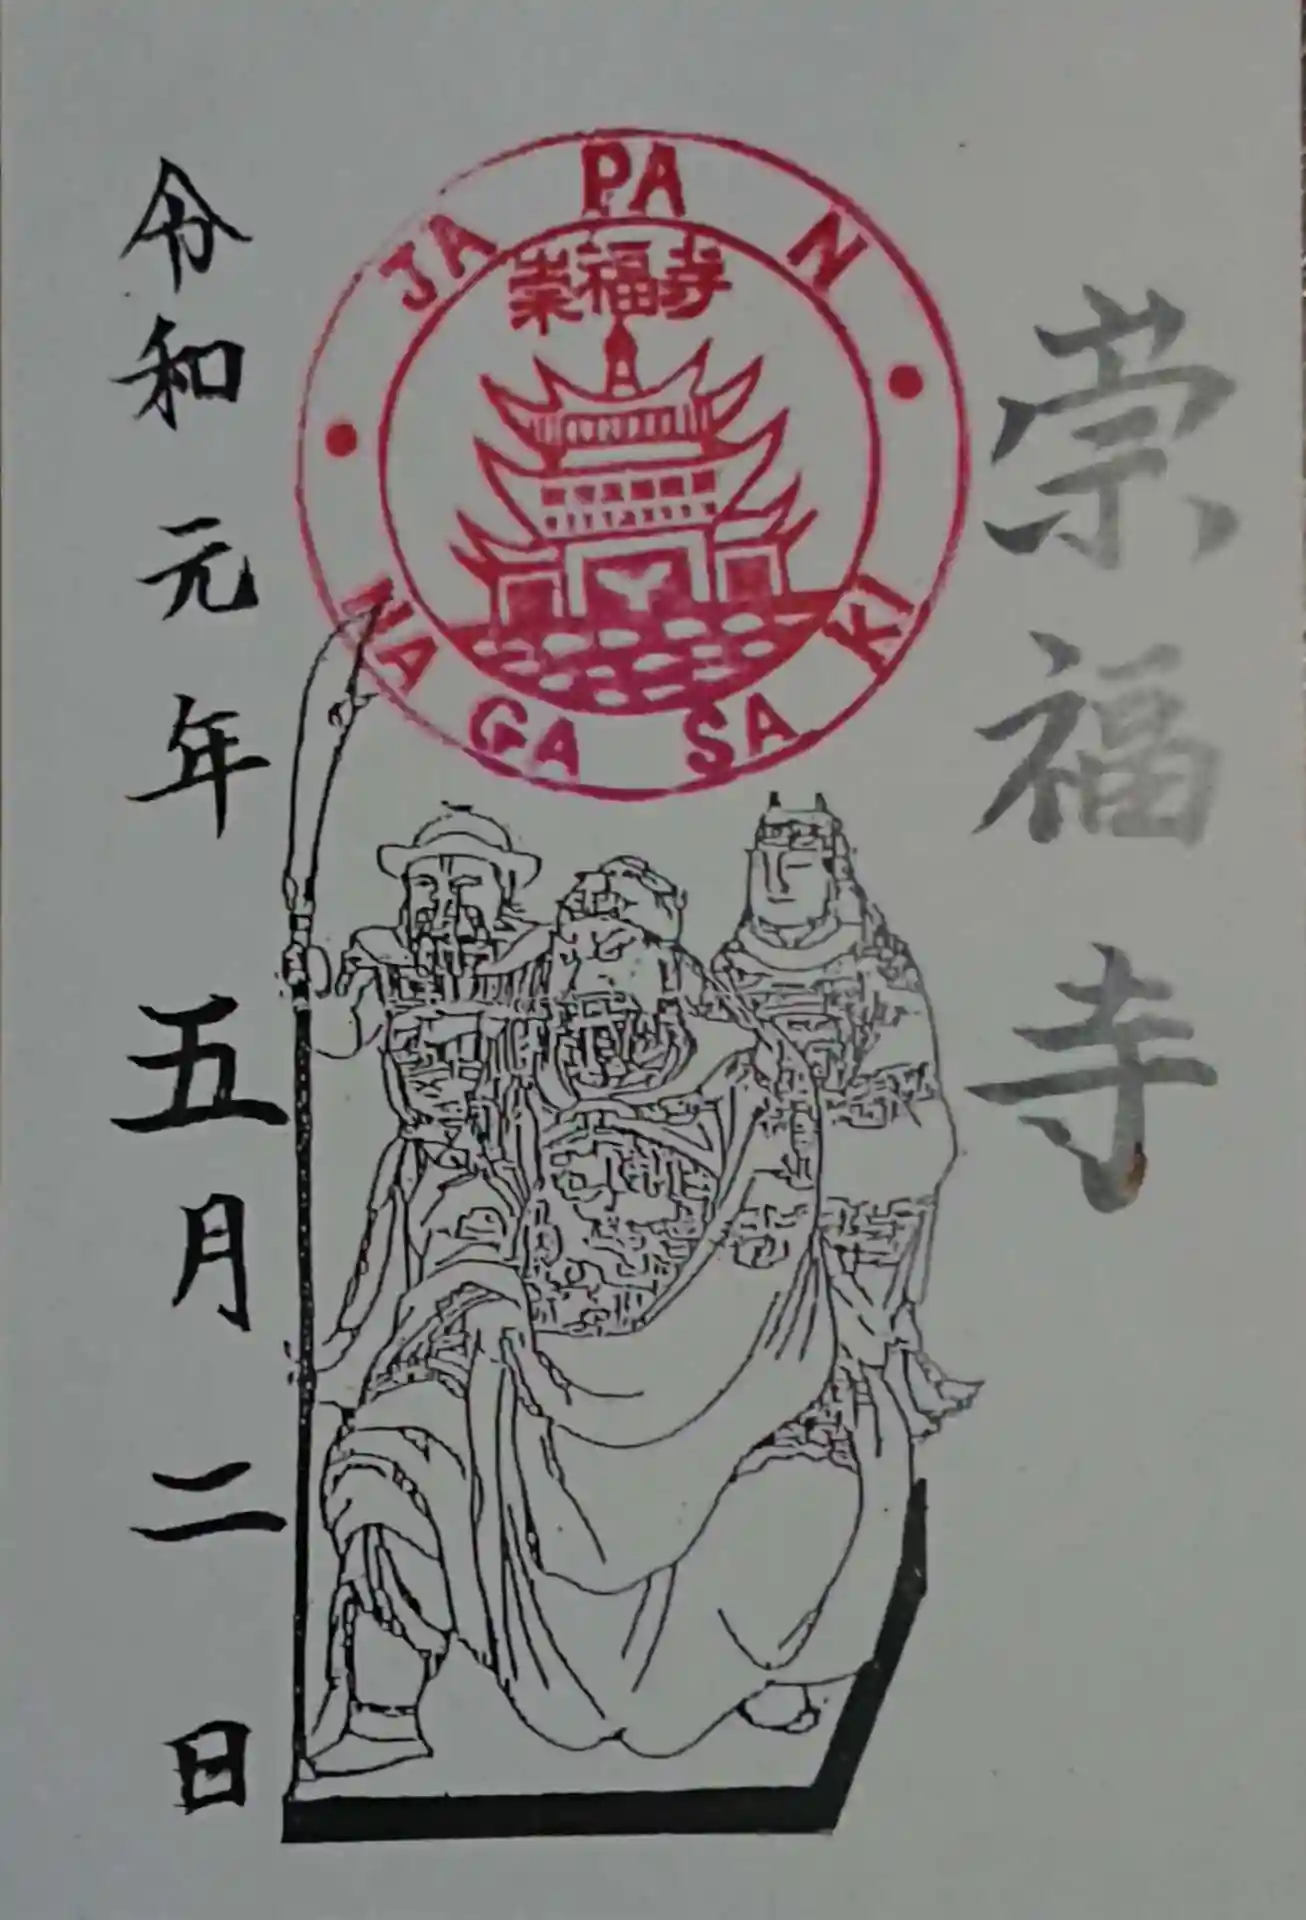 崇福寺
JAPAN
崇福寺
NAGASAKI
令和元年五月二日